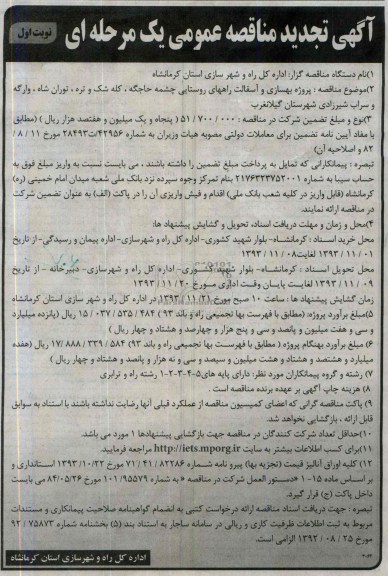 آگهی تجدید مناقصه عمومی یک مرحله ای
نوبت اول
۱)نام دستگاه مناقصه گزار: اداره کل راه و شهر سازی استان کرمانشاه
۲)موضوع مناقصه : پروژه بهسازی و آسفالت راههای روستایی چشمه حاجگه ، کله شک و تره ، توران شاه ، وارگه
و سراب شیرزادی شهرستان گیلانغرب
۳)نوع و مبلغ تضمین شرکت در مناقصه : ۵۱/۷۰۰/۰۰۰ ( پنجاه و یک میلیون و هفتصد هزار ریال ) (مطابق
با مفاد آیین نامه تضمین برای معاملات دولتی مصوبه هیات وزیران به شماره ۴۲۹۵۶/ت۲۸۴۹۳ مورخ ۱۱ / ۸ /
۸۲ و اصلاحیه آن)
تبصره : پیمانکارانی که تمایل به پرداخت مبلغ تضمین را داشته باشند ، می بایست نسبت به واریز مبلغ فوق به
حساب سیبا به شماره ۲۱۷۶۴۳۳۷۵۲۰۰۱ بنام تمرکز وجوه سپرده نزد بانک ملی شعبه میدان امام خمینی (ره)
کرمانشاه (قابل واریز در کلیه شعب بانک ملی) اقدام و فیش واریزی آن را در پاکت (الف) به عنوان تضمین شرکت
در مناقصه ارائه نمایند.
۴)محل و زمان و مهلت دریافت اسناد، تحویل و گشایش پیشنهاد ها:
محل خرید اسناد : کرمانشاه- بلوار شهید کشوری- اداره کل راه و شهرسازی- اداره پیمان و رسیدگی- از تاریخ
۰۱ / ۱۱ / ۱۳۹۳ لغایت ۰۸ / ۱۱ / ۱۳۹۳
محل تحویل اسناد : کرمانشاه- بلوار شهید کشوری- اداره کل راه و شهرسازی- دبیرخانه - از تاریخ
۰۹ / ۱۱ / ۱۳۹۳ لغایت پایان وقت اداری مورخ ۲۰ / ۱۱ / ۱۳۹۳
زمان گشایش پیشنهاد ها : ساعت ۱۰ صبح مورخ ۲۱ / ۱۱ / ۱۳۹۳ در اداره کل راه و شهر سازی استان کرمانشاه
۵)مبلغ برآورد پروژه: (مطابق با فهرست بها تجمیعی راه و باند ۹۳ ) ۴۸۴ / ۵۳۵ / ۰۳۷ / ۱۵ ریال (پانزده میلیارد
و سی و هفت میلیون و پانصد و سی و پنج هزار و چهارصد و هشتاد و چهار ریال )
۶) مبلغ برآورد بهنگام پروژه ( مطابق با فهرست بها تجمیعی راه و باند ۹۳) ۵۸۴ / ۳۳۹ / ۸۸۸ / ۱۷ ریال (هفده
میلیارد و هشتصد و هشتاد و هشت میلیون و سیصد و سی و نه هزار و پانصد و هشتاد و چهار ریال )
۷) رشته و گروه پیمانکاران مورد نظر: دارای پایه های ۵-۴-۳-۲-۱ رشته راه و ترابری
۸) هزینه چاپ آگهی بر عهده برنده مناقصه است .
۹) پاکت مناقصه گرانی که اعضای کمیسیون مناقصه از عملکرد قبلی آنها رضایت نداشته باشند با استناد به سوابق
قابل ارائه ، بازگشایی نخواهد شد.
۱۰)حداقل تعداد شرکت کنندگان در مناقصه جهت بازگشایی پیشنهادها ۱ مورد می باشد.
۱۱)برای کسب اطلاعات بیشتر به سایت http://iets.mporg.ir مراجعه فرمایید.
۱۲) کلیه اوراق آنالیز قیمت (تجزیه بها) پیرو نامه شماره ۸۲۲۸۶ / ۴۱ / ۷۱ مورخ ۱۳۹۳/۱۰/۲۲ استانداری و
بر اساس ماده ۱۵-۱ «دستور العمل شرکت در مناقصه » به شماره ۱۰۱/۹۵۵۷۹ مورخ ۸۴/۰۵/۲۶ می بایست
داخل پاکت (ج) قرار گیرد.
تبصره : جهت دریافت اسناد مناقصه ارائه درخواست کتبی به انضمام گواهینامه صلاحیت پیمانکاری و مستندات
مربوط به ثبت اطلاعات ظرفیت کاری و ریالی در سامانه ساجار به استناد بند (۵) بخشنامه شماره ۷۵۸۷۳ / ۹۲
مورخ ۲۵ / ۰۸ / ۱۳۹۲ الزامی است.
اداره کل راه و شهرسازی استان کرمانشاه